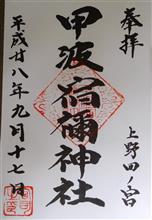 奉拝
上野四ノ宮
甲波宿禰神社
平成廿八年九月十七日